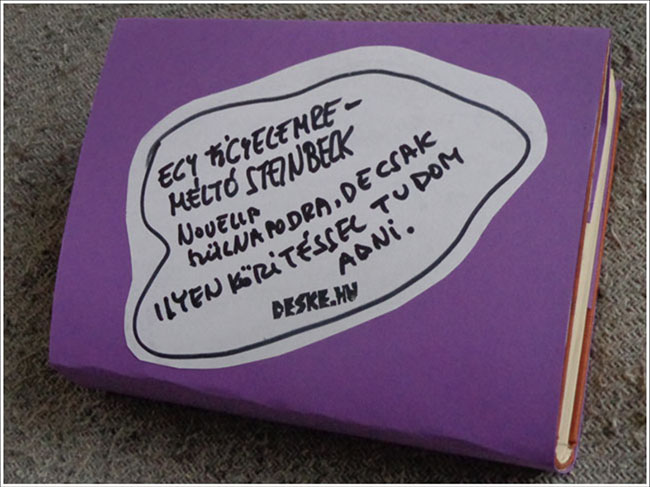 EGY FIGYELEMRE-
MÉLTÓ STEINBECK
NOVELLA
HÓLNAPODRA, DE CSAK
ILYEN KÖRITÉSSEL TUDOM
ADNI.
DESKE.HU